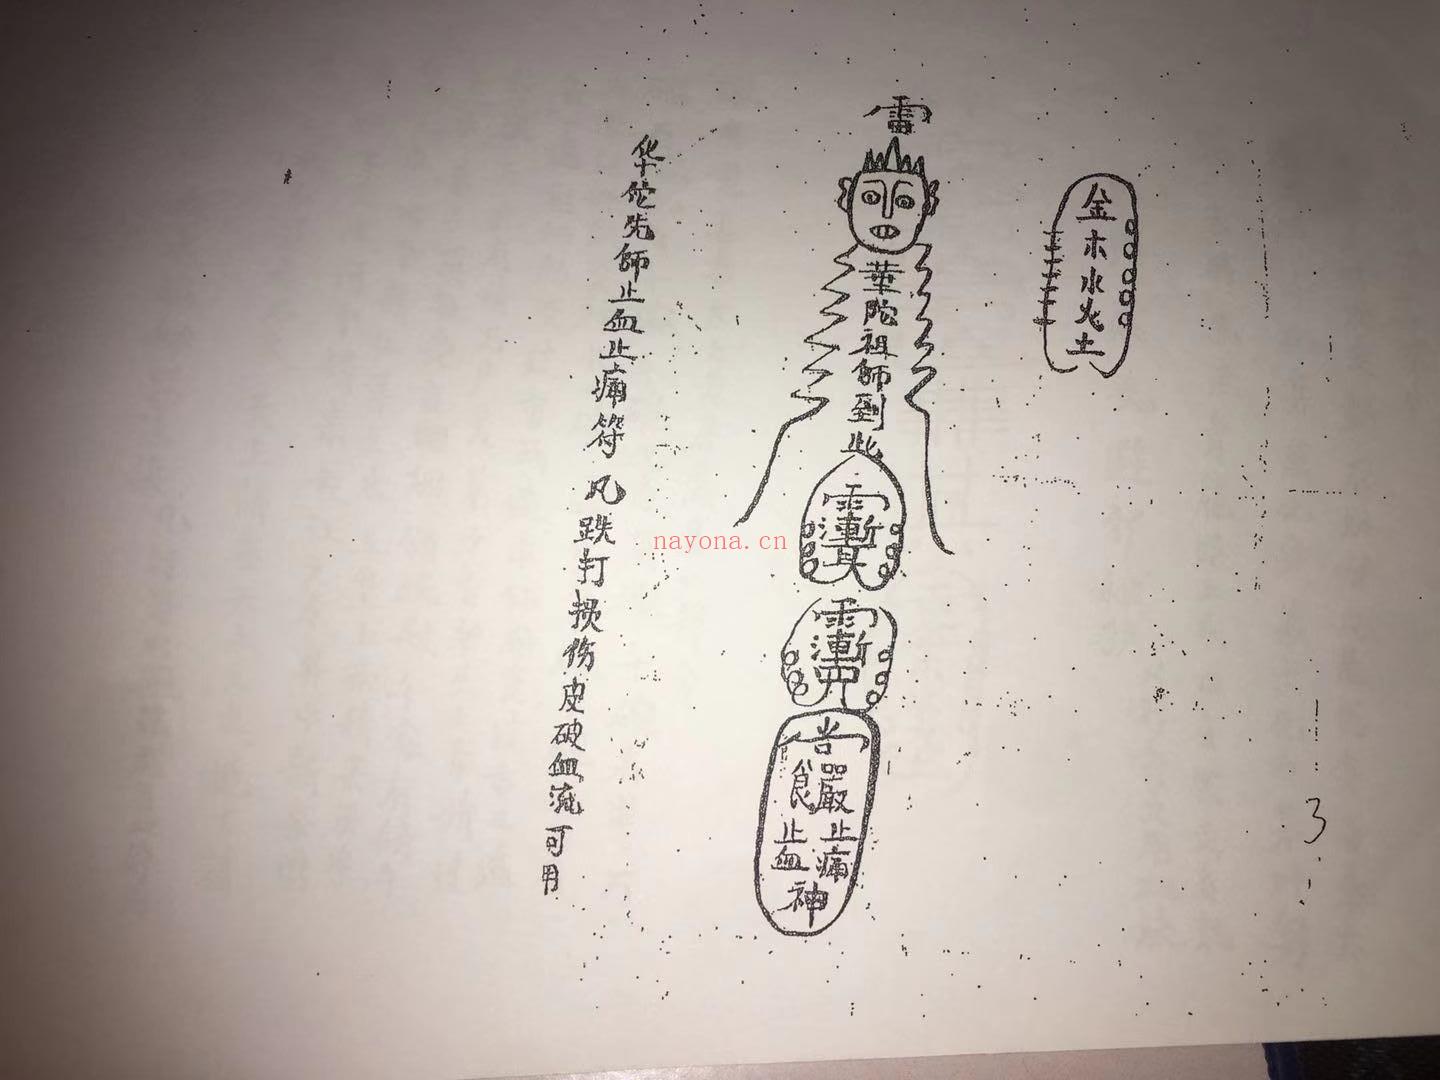 金木水火土
雷
華陀祖師到此
嚴止痛
食止血
神
华佗先師止血止痛符 凡跌打损伤皮破血流可用
3
nayona.cn